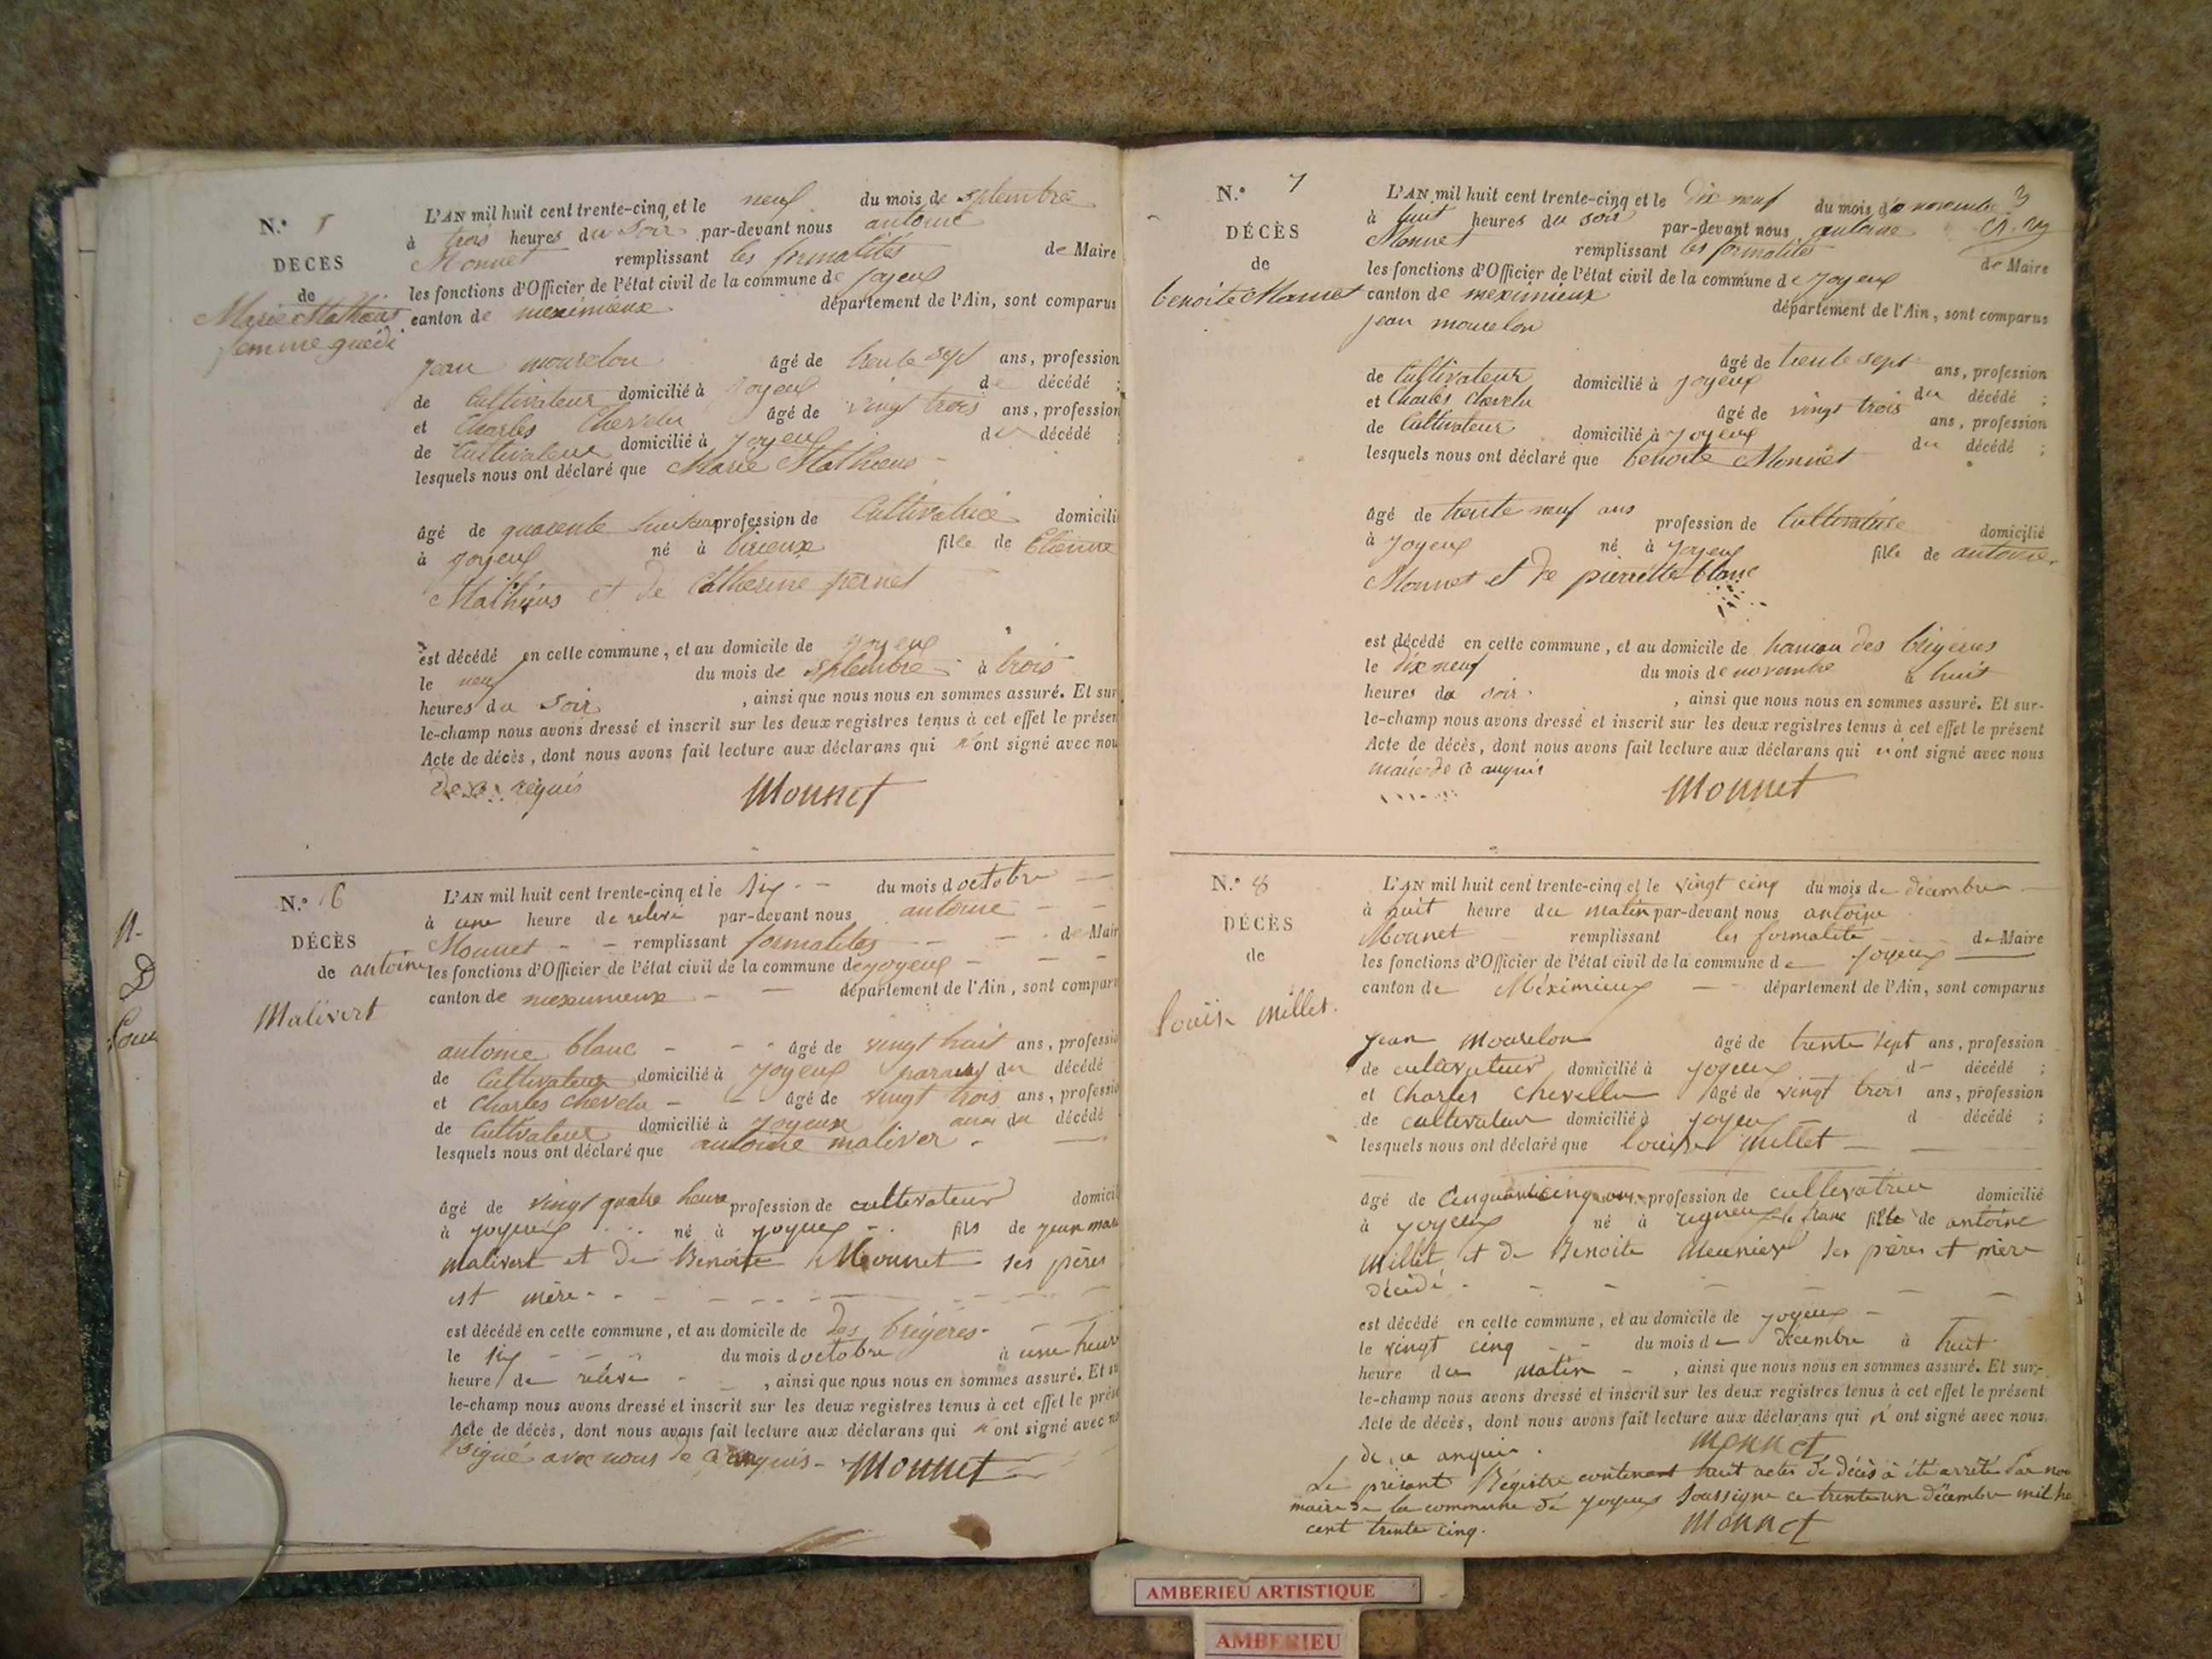 N.º 5
DÉCÈS
de
Marie Mathieus
femme guédi
L'AN mil huit cent trente-cinq et le neuf du mois de septembre
à trois heures du soir par-devant nous antoine
Monnet remplissant les formalités de Maire
les fonctions d'Officier de l'état civil de la commune de joyeux
canton de meximieux département de l'Ain, sont comparus
jean mourelon âgé de trente sept ans, profession
de Cultivateur domicilié à joyeux de décédé ;
et Charles Chevelu âgé de vingt trois ans, profession
de Cultivateur domicilié à joyeux du décédé ;
lesquels nous ont déclaré que Marie Mathieus
âgé de quarente huit ans profession de Cultivatrice domicili
à joyeux né à birieux fille de Etienne
Mathieus et de Catherine pernet
est décédé en cette commune, et au domicile de joyeux
le neuf du mois de septembre à trois
heures du soir, ainsi que nous nous en sommes assuré. Et sur
le-champ nous avons dressé et inscrit sur les deux registres tenus à cet effet le présen
Acte de décès, dont nous avons fait lecture aux déclarans qui n'ont signé avec nou
de ce requis Monnet
N.º 6
DÉCÈS
de antoine
Malivert
L'AN mil huit cent trente-cinq et le six du mois d octobre
à une heure de relevé par-devant nous antoine
Monnet remplissant formalités de Mair
les fonctions d'Officier de l'état civil de la commune de joyeux
canton de meximieux département de l'Ain, sont compar
antoine blanc âgé de vingt huit ans, professio
de Cultivateur domicilié à joyeux du décédé
et Charles chevelu âgé de vingt trois ans, professio
de Cultivateur domicilié à joyeux ami du décédé
lesquels nous ont déclaré que antoine maliver
âgé de vingt quatre heure profession de cultivateur domicil
à joyeux né à joyeux fils de jean marie
malivert et de Benoite Monnet ses pères
est mère
est décédé en cette commune, et au domicile de des brigères
le six du mois d octobre à une heur
heure de relévé, ainsi que nous nous en sommes assuré. Et su
le-champ nous avons dressé et inscrit sur les deux registres tenus à cet effet le prése
Acte de décès, dont nous avons fait lecture aux déclarans qui n'ont signé avec no
signé avec nous de ce enquis Monnet
N.º 7
DÉCÈS
de
benoite Monnet
3
L'AN mil huit cent trente-cinq et le dix neuf du mois de novembre
à huit heures du soir par-devant nous antoine
Monnet remplissant les formalités de Maire
les fonctions d'Officier de l'état civil de la commune de joyeux
canton de meximieux département de l'Ain, sont comparus
jean mourelon
âgé de trente sept ans, profession
de Cultivateur domicilié à joyeux du décédé ;
et Charles chevelu âgé de vingt trois ans, profession
de Cultivateur domicilié à joyeux du décédé ;
lesquels nous ont déclaré que benoite Monnet
âgé de trente neuf ans profession de Cultivatrice domicilié
à joyeux né à joyeux fille de antoine
Monnet et de pierrette blanc
est décédé en cette commune, et au domicile de hameau des brigères
le dix neuf du mois de novembre à huit
heures du soir, ainsi que nous nous en sommes assuré. Et sur-
le-champ nous avons dressé et inscrit sur les deux registres tenus à cet effet le présent
Acte de décès, dont nous avons fait lecture aux déclarans qui n'ont signé avec nous
maire de ce anquis
Monnet
N.º 8
DÉCÈS
de
louise millet.
L'AN mil huit cent trente-cinq et le vingt cinq du mois de décembre
à huit heure du matin par-devant nous antoine
Monnet remplissant les formalité de Maire
les fonctions d'Officier de l'état civil de la commune de joyeux
canton de Méximieux département de l'Ain, sont comparus
jean mourelon âgé de trente sept ans, profession
de cultivateur domicilié à joyeux d décédé ;
et Charles chevellu âgé de vingt trois ans, profession
de cultivateur domicilié à joyeux d décédé ;
lesquels nous ont déclaré que louise millet
âgé de cinquante cinq ans profession de cultivatrice domicilié
à joyeux né à rigneux le franc fille de antoine
millet et de Benoite meunier ses pères et mère
décédé
est décédé en cette commune, et au domicile de joyeux
le vingt cinq du mois de décembre à huit
heure du matin, ainsi que nous nous en sommes assuré. Et sur-
le-champ nous avons dressé et inscrit sur les deux registres tenus à cet effet le présent
Acte de décès, dont nous avons fait lecture aux déclarans qui n'ont signé avec nous
de ce anquis. Monnet
Le présant Régistre contenant huit actes de décès à été arrêté par nou
maire de la commune de joyeux soussigne ce trente un décembre mil hu
cent trente cinq. Monnet
AMBERIEU ARTISTIQUE
AMBERIEU